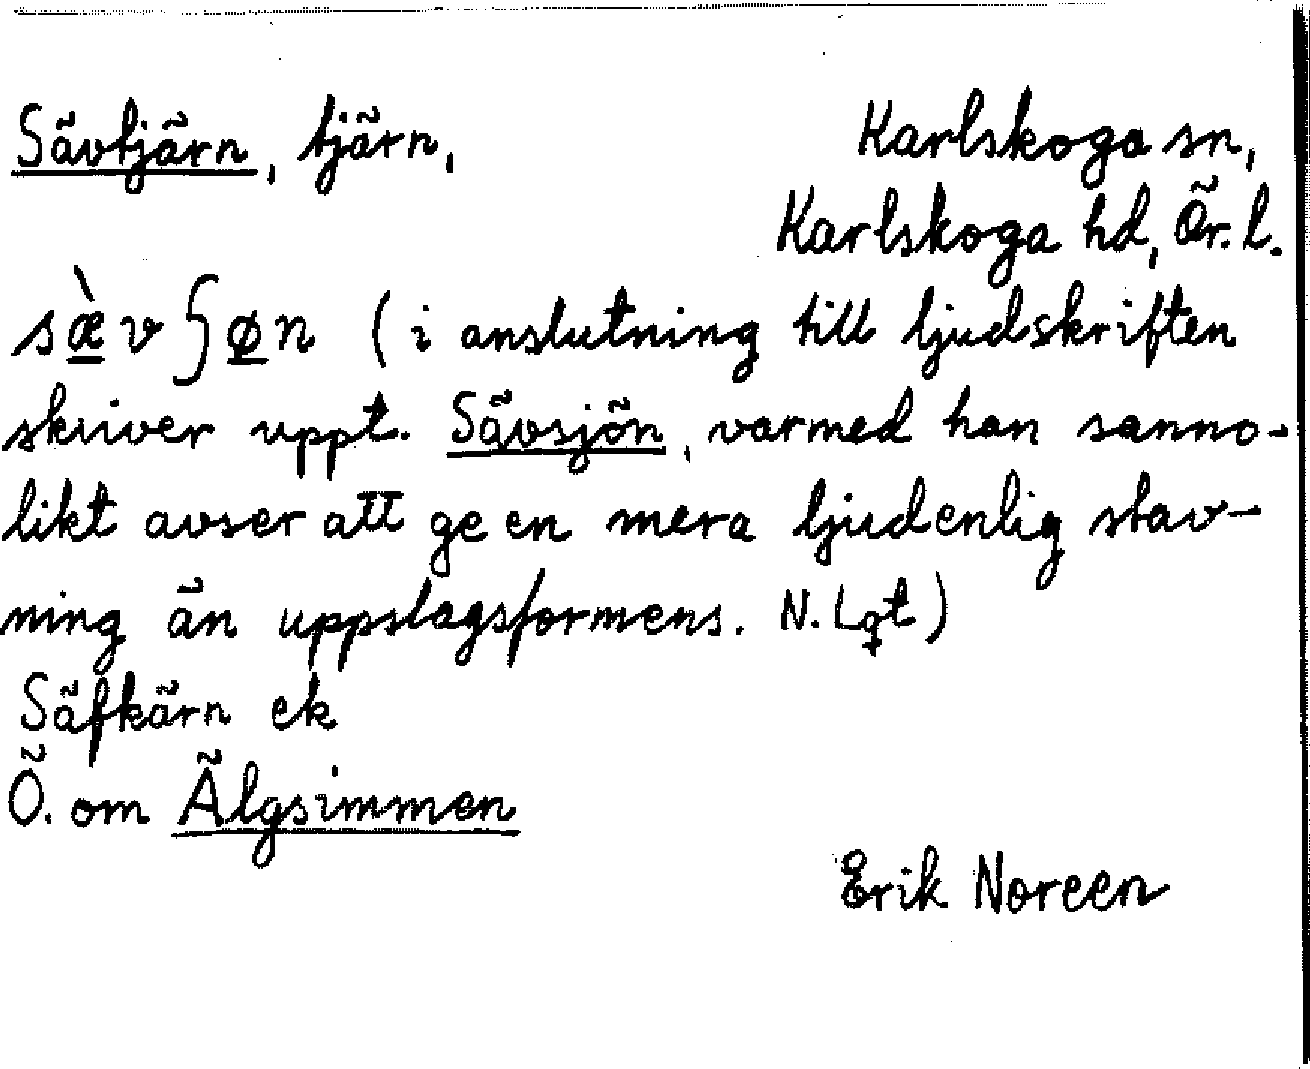 Sävtjärn, tjärn, Karlskoga sn,
Karlskoga hd, Ör. l.
sæ̀vʃøn (i anslutning till ljudskriften
skriver uppt. Sävsjön, varmed han sanno-
likt avser att ge en mera ljudenlig stav-
ning än uppslagsformens. N. Lqt)
Säfkärn ek
Ö. om Älgsimmen
Erik Noreen